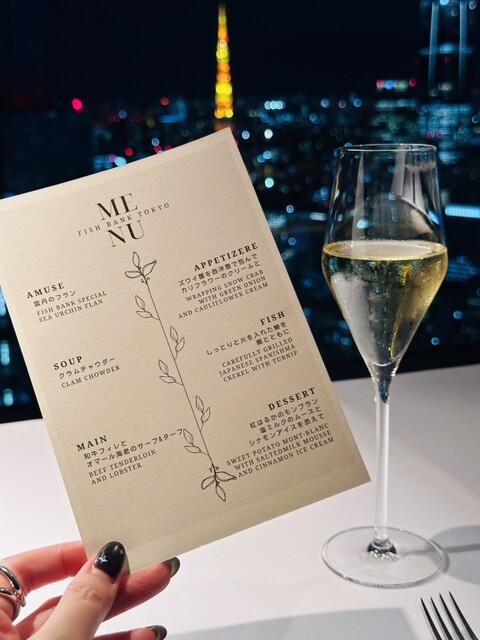 ME
FISH BANK TOKYO
NU
AMUSE
雲丹のフラン
FISH BANK SPECIAL
SEA URCHIN FLAN
APPETIZERE
ズワイ蟹を西洋葱で包んで
カリフラワーのクリームと
WRAPPING SNOW CRAB
WITH GREEN ONION
AND CAULIFLOWER CREAM
SOUP
クラムチャウダー
CLAM CHOWDER
FISH
しっとりと火を入れた鰆を
蕪とともに
CAREFULLY GRILLED
JAPANESE SPANISHMA
CKEREL WITH TURNIP
MAIN
和牛フィレと
オマール海老のサーフ&ターフ
BEEF TENDERLOIN
AND LOBSTER
DESSERT
紅はるかのモンブラン
塩ミルクのムースと
シナモンアイスを添えて
SWEET POTATO MONT-BLANC
WITH SALTEDMILK MOUSSE
AND CINNAMON ICE CREAM